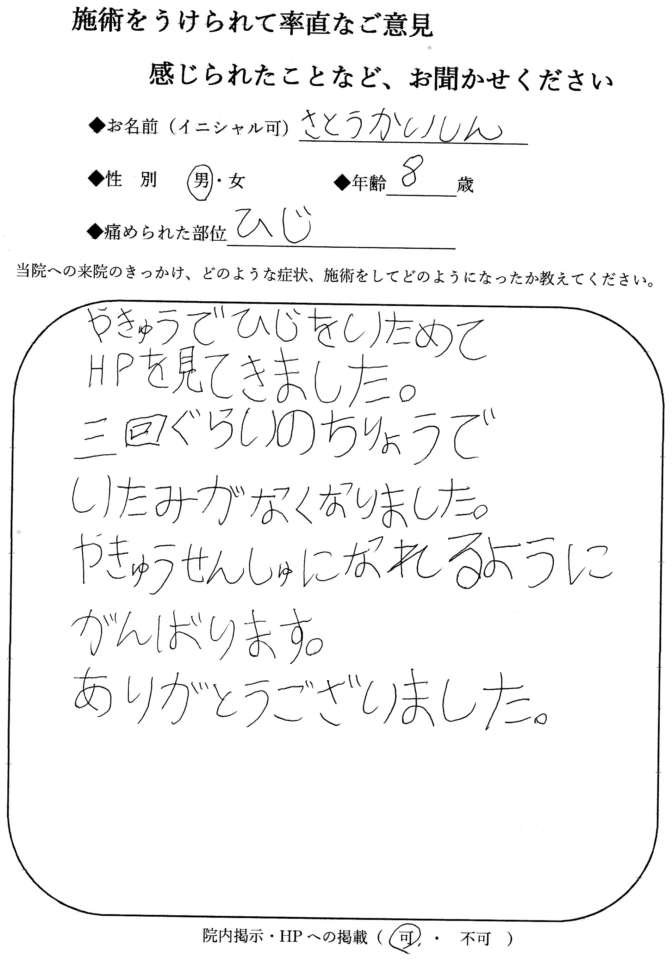 施術をうけられて率直なご意見
感じられたことなど、お聞かせください
◆お名前（イニシャル可）さとうかいしん
◆性 別 男・女 ◆年齢 8 歳
◆痛められた部位 ひじ
当院への来院のきっかけ、どのような症状、施術をしてどのようになったか教えてください。
やきゅうでひじをいためて
HPを見てきました。
三回ぐらいのちりょうで
いたみがなくなりました。
やきゅうせんしゅになれるように
がんばります。
ありがとうございました。
院内掲示・HPへの掲載（ 可 ・ 不可 ）